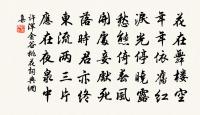 花在舞樓空
年年依舊紅
淚光停曉露
愁態倚春風
開處妾先死
落時君亦終
東流兩三片
應在夜泉中
許渾金谷桃花詞典網
集